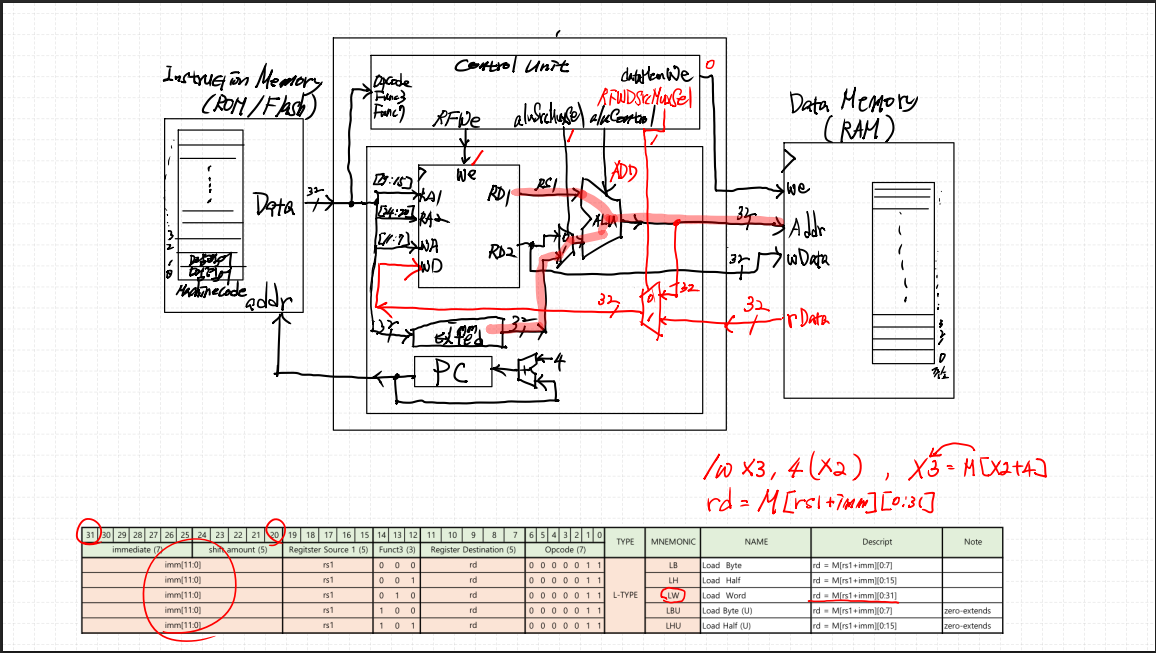 Instruction Memory
(ROM/Flash)
Control Unit
Opcode
Func3
Func7
dataMemWe
0
RFWDSrcMuxSel
RFWe
aluSrcMuxSel
aluControl
1
1
1
ADD
Data Memory
(RAM)
Data
32
We
[19:15]
RA1
RD1
RS1
[24:20]
RA2
ALU
[11:7]
WA
RD2
WD
0
32
32
We
Addr
wData
rData
32
32
32
0
1
3
2
1
0
Machine Code
addr
32
32
PC
4
+
3
2
1
0
lw X3, 4(X2) , X3 = M[X2+4]
rd = M[rs1+imm][0:31]
31 30 29 28 27 26 25 24 23 22 21 20 19 18 17 16 15 14 13 12 11 10 9 8 7 6 5 4 3 2 1 0 TYPE MNEMONIC NAME Descript Note
immediate (7) shift amount (5) Regitster Source 1 (5) Funct3 (3) Register Destination (5) Opcode (7)
imm[11:0] rs1 0 0 0 rd 0 0 0 0 0 1 1 LB Load Byte rd = M[rs1+imm][0:7]
imm[11:0] rs1 0 0 1 rd 0 0 0 0 0 1 1 LH Load Half rd = M[rs1+imm][0:15]
imm[11:0] rs1 0 1 0 rd 0 0 0 0 0 1 1 L-TYPE LW Load Word rd = M[rs1+imm][0:31]
imm[11:0] rs1 1 0 0 rd 0 0 0 0 0 1 1 LBU Load Byte (U) rd = M[rs1+imm][0:7] zero-extends
imm[11:0] rs1 1 0 1 rd 0 0 0 0 0 1 1 LHU Load Half (U) rd = M[rs1+imm][0:15] zero-extends